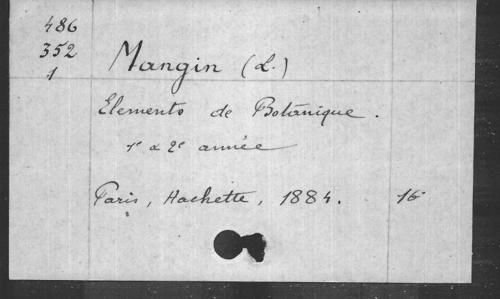 486
352
1
Mangin (L.)
Elements de Botanique.
1e & 2e année
Paris, Hachette, 1884. 16